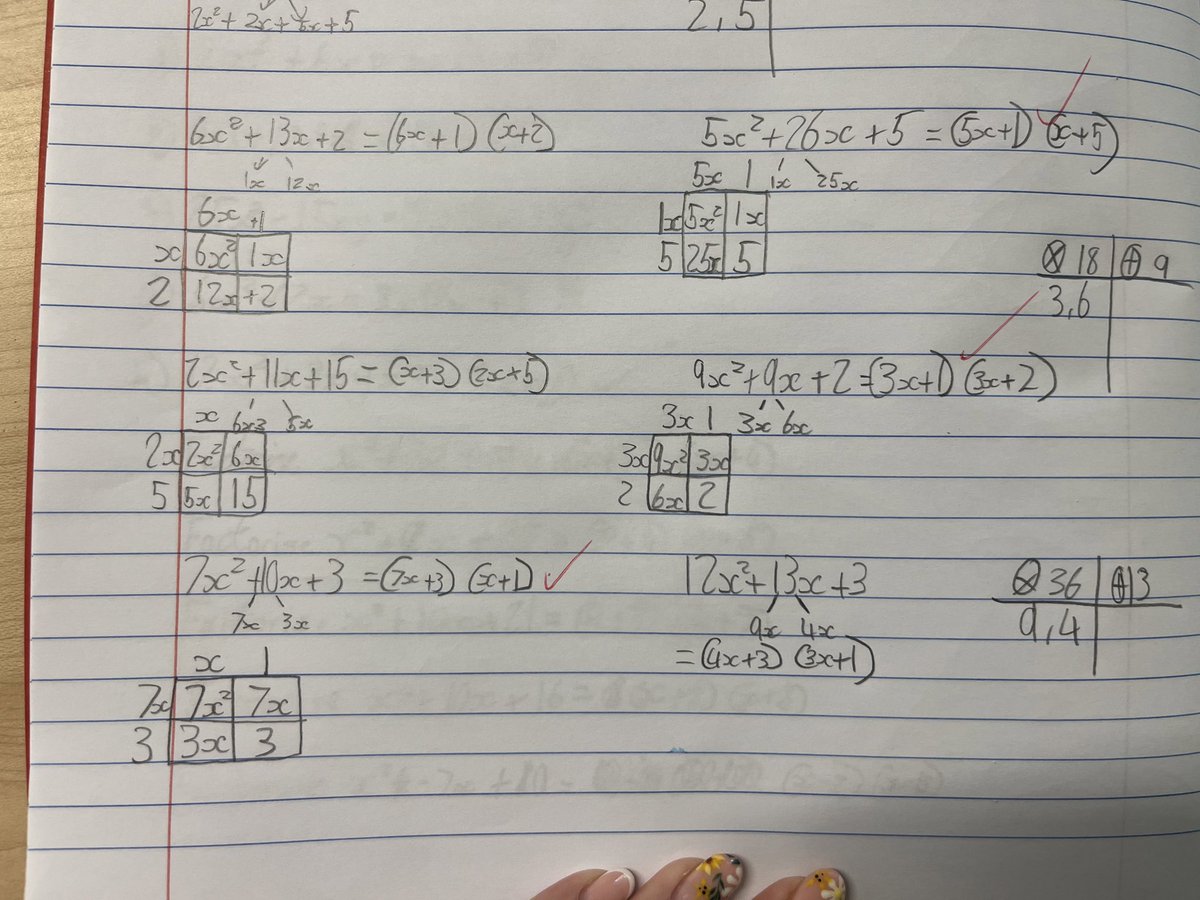 2x² + 2x + 5x + 5
2,5
6x² + 13x + 2 = (6x + 1) (x+2)
1x 12x
6x +1
x 6x² 1x
2 12x +2
5x² + 26x + 5 = (5x+1) (x+5)
1x 25x
5x 1
1x 5x² 1x
5 25x 5
⊗ 18 ⊕ 9
3,6
2x² + 11x + 15 = (x+3) (2x+5)
6x 5x
x 3
2x 2x² 6x
5 5x 15
9x² + 9x + 2 = (3x+1) (3x+2)
3x 6x
3x 1
3x 9x² 3x
2 6x 2
7x² + 10x + 3 = (7x+3) (x+1)
7x 3x
x 1
7x 7x² 7x
3 3x 3
12x² + 13x + 3
9x 4x
= (4x+3) (3x+1)
⊗ 36 ⊕ 13
9,4